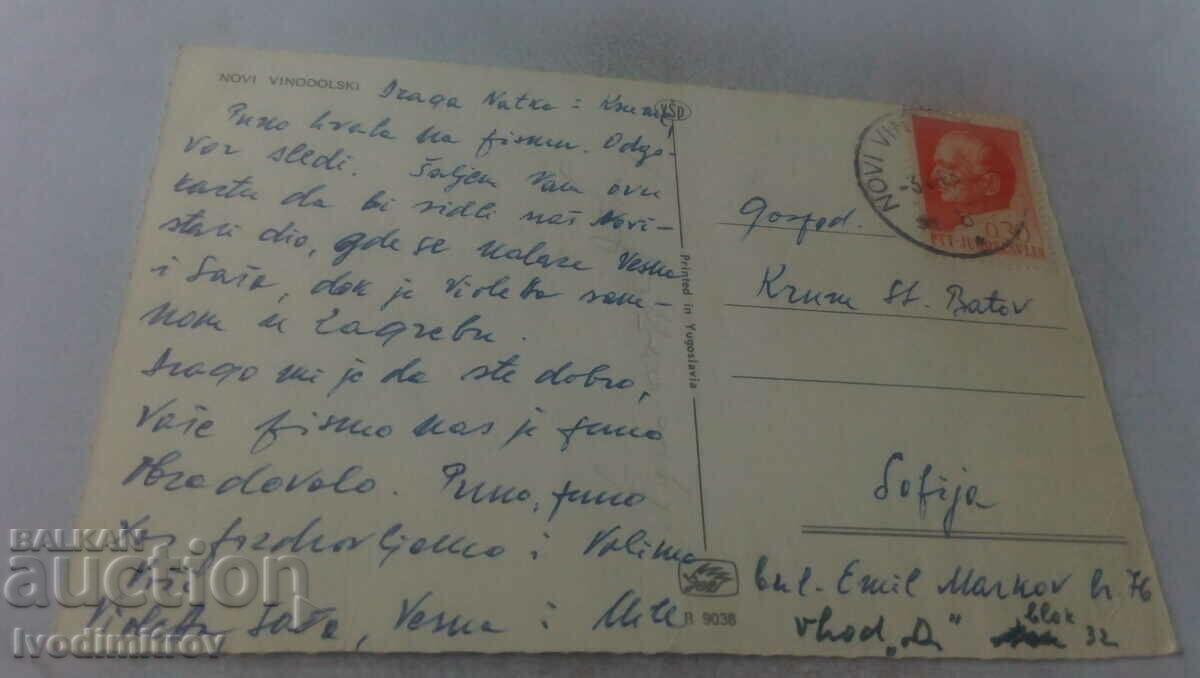 NOVI VINODOLSKI
Draga Natka i Krume,
Puno hvala na pismu. Odgo-
vor sledi. Šaljem Vam ovu
kartu da bi vidli naš Novi-
stari dio, gde se nalaze Vesna
i Saša, dok je Violeta sam-
nom u Zagrebu.
Drago mi je da ste dobro,
Vaše pismo nas je puno
Obradovalo. Puno, puno
Vas pozdravljamo i Volimo
Vaši
Violeta Saša, Vesna i Mile
VŠD
Printed in Yugoslavia
R 9038
NOVI VIN
0,30
PTT-JUGOSLAVIJA
Gospod.
Krum St. Batov
Sofija
bul. Emil Markov br. 76
blok
vhod „D" 32
BALKAN
auction
Ivodimitrov